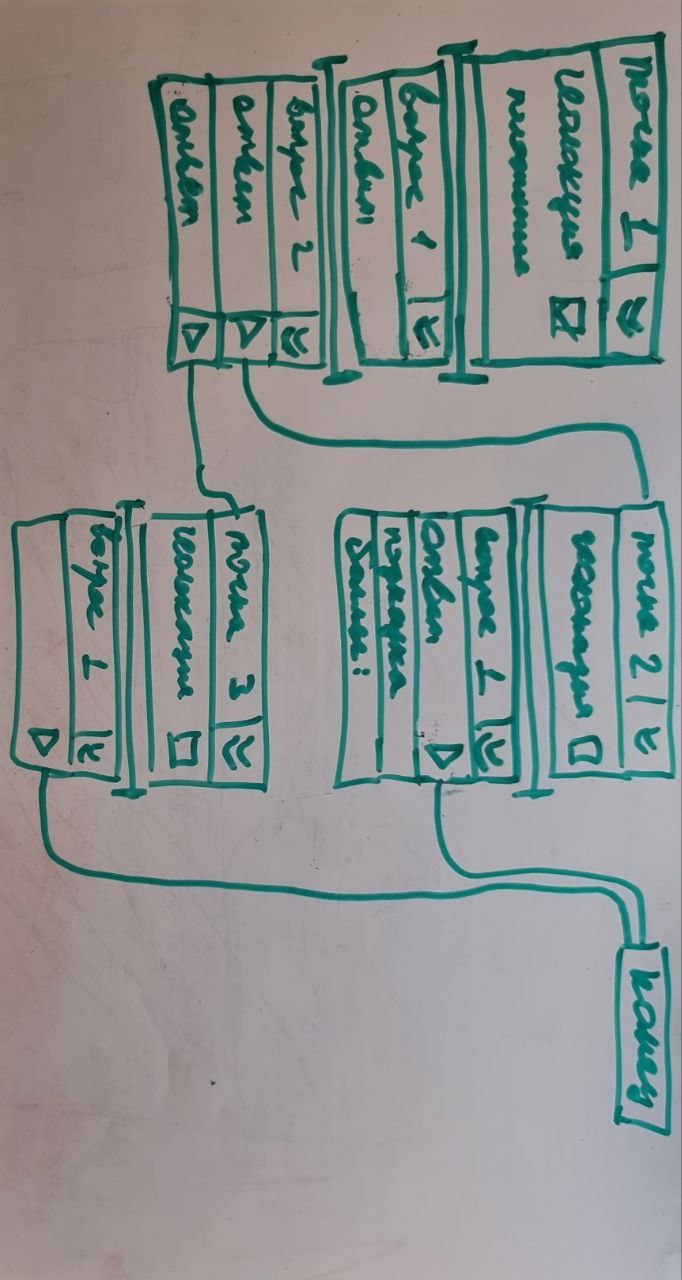 точка 1
геолокация
вопрос 1
ответ
вопрос 2
ответ
ответ
точка 2
геолокация
вопрос 1
ответ
подсказка
баллы:
точка 3
геолокация
вопрос 1
конец